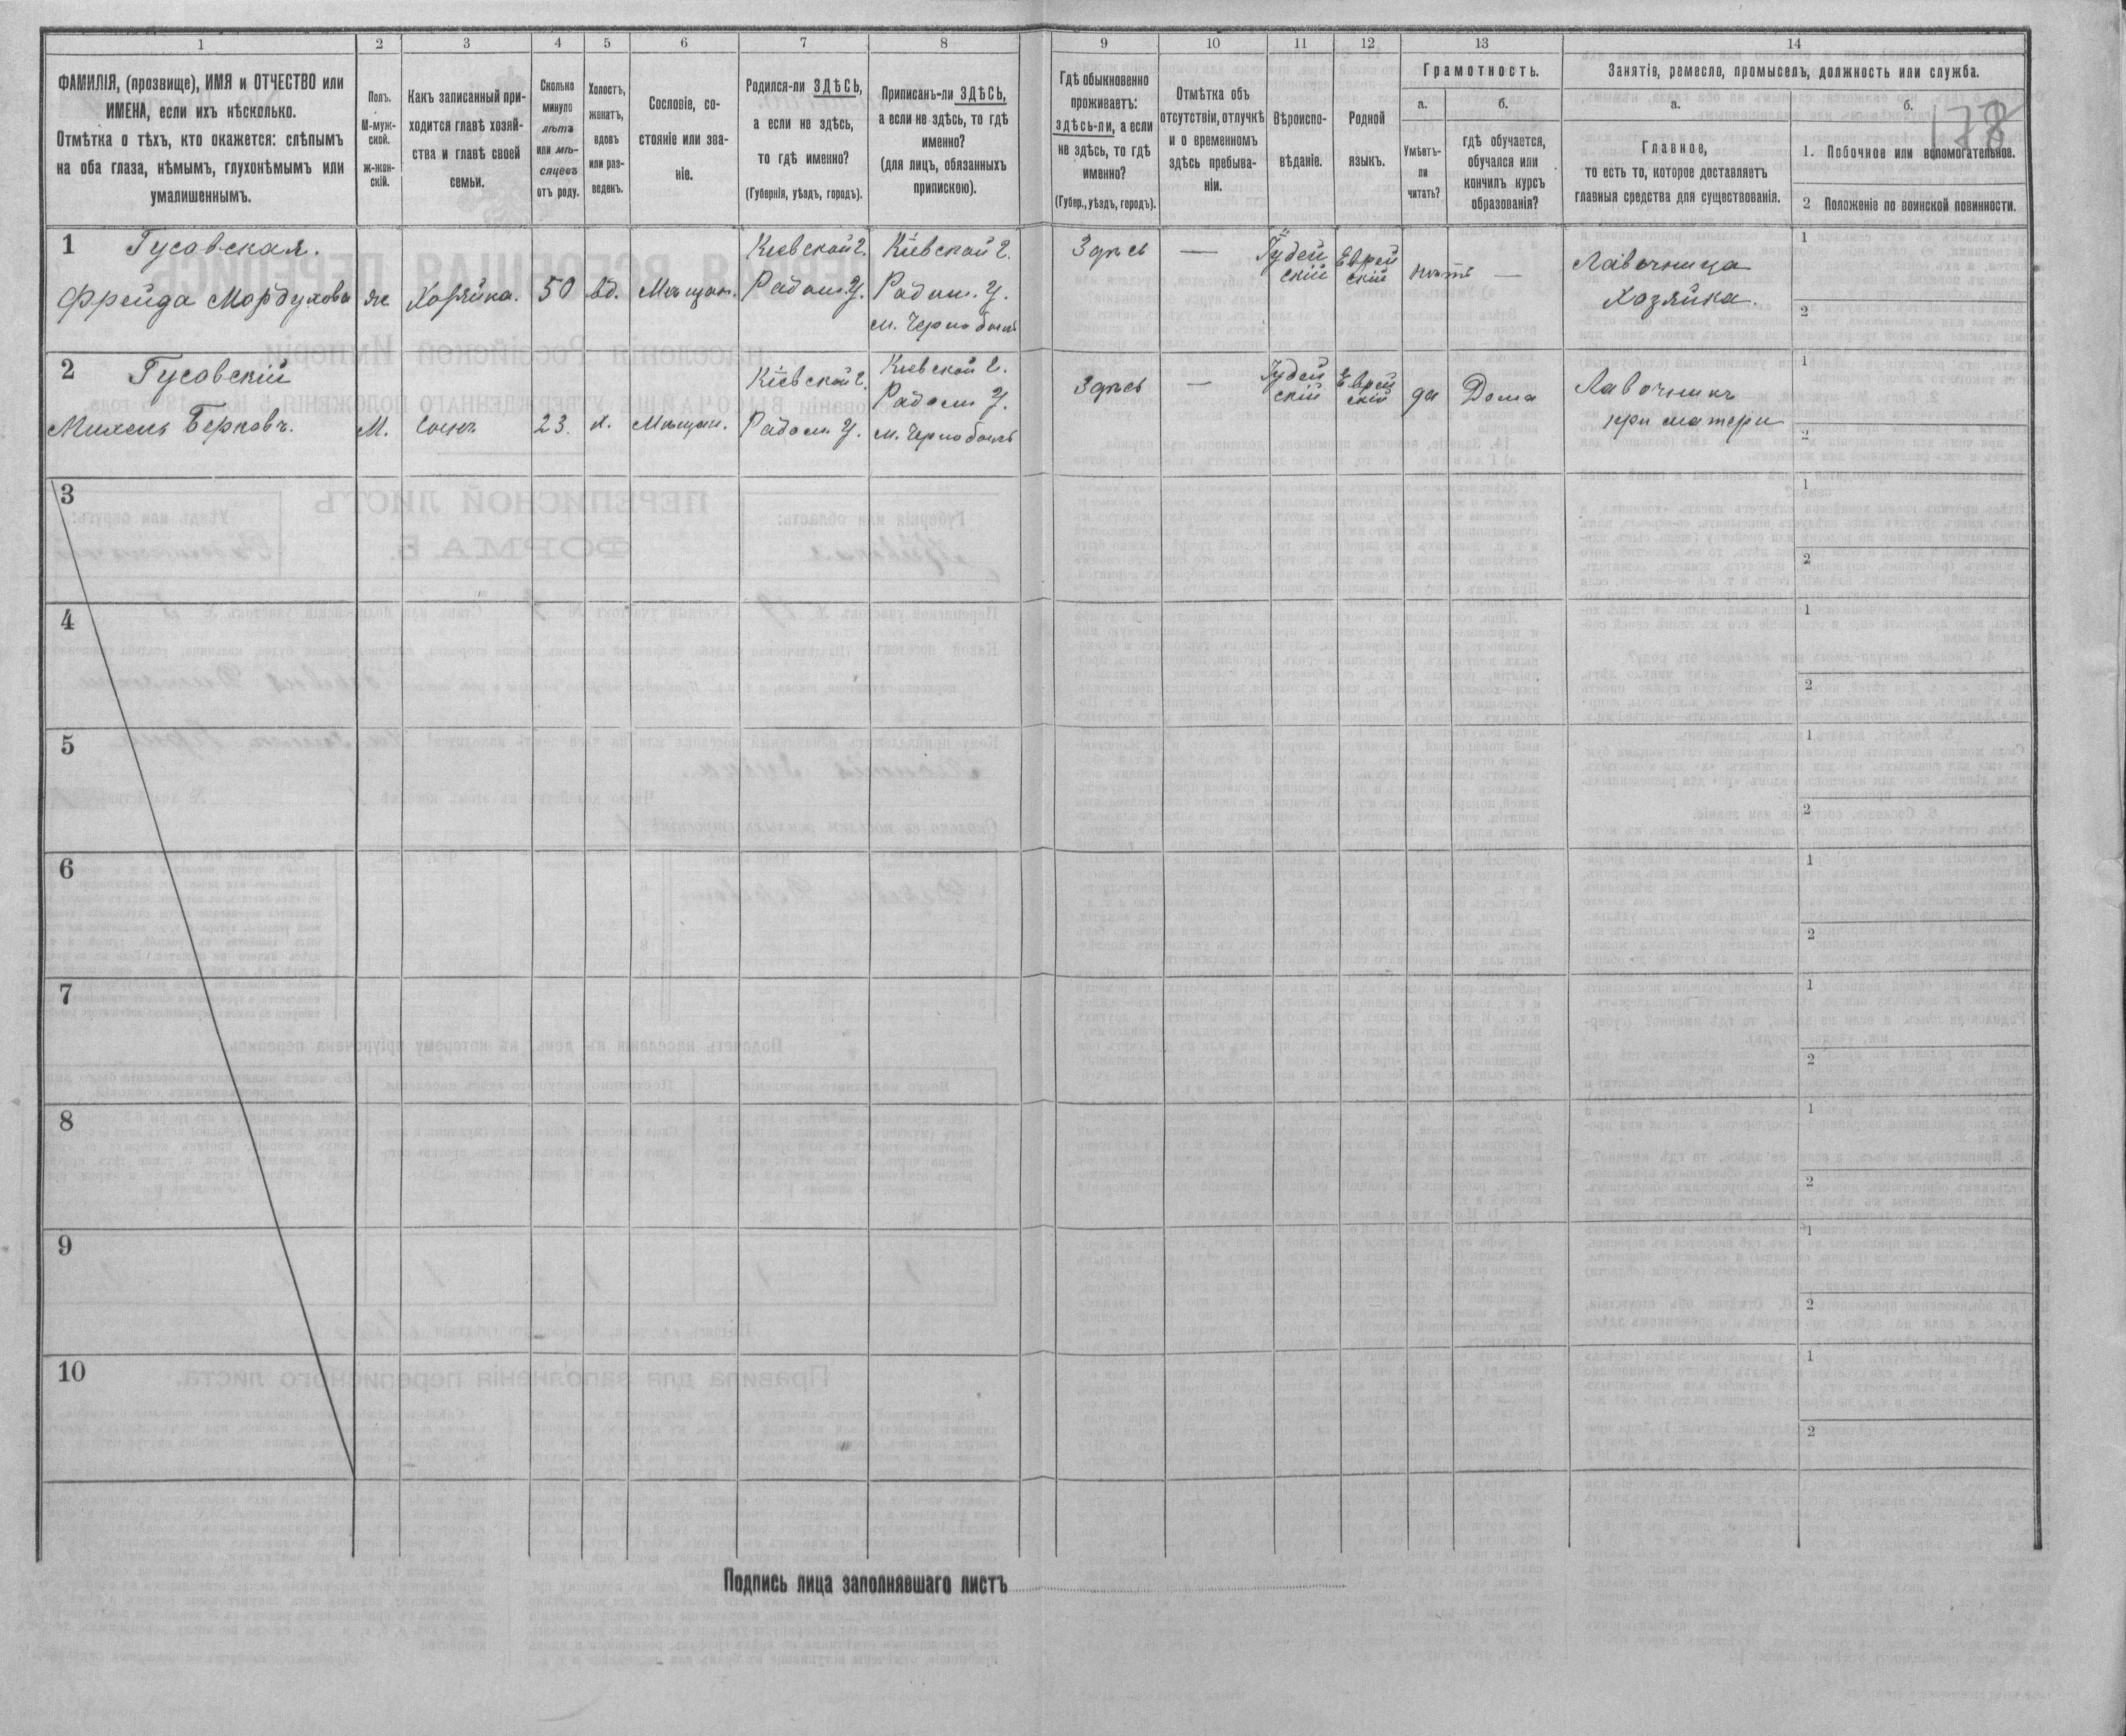 1 2 3 4 5 6 7 8 9 10 11 12 13 14
ФАМИЛІЯ, (прозвище), ИМЯ и ОТЧЕСТВО или
ИМЕНА, если ихъ нѣсколько.
Отмѣтка о тѣхъ, кто окажется: слѣпымъ
на оба глаза, нѣмымъ, глухонѣмымъ или
умалишеннымъ.
Полъ.
М-муж-
ской.
ж-жен-
скій.
Какъ записанный при-
ходится главѣ хозяй-
ства и главѣ своей
семьи.
Сколько
минуло
лѣтъ
или мѣ-
сяцевъ
отъ роду.
Холостъ,
женатъ,
вдовъ
или раз-
веденъ.
Сословіе, со-
стояніе или зва-
ніе.
Родился-ли ЗДѢСЬ,
а если не здѣсь,
то гдѣ именно?
(Губернія, уѣздъ, городъ).
Приписанъ-ли ЗДѢСЬ,
а если не здѣсь, то гдѣ
именно?
(для лицъ, обязанныхъ
припискою).
Гдѣ обыкновенно
проживаетъ:
здѣсь-ли, а если
не здѣсь, то гдѣ
именно?
(Губер., уѣздъ, городъ).
Отмѣтка объ
отсутствіи, отлучкѣ
и о временномъ
здѣсь пребыва-
ніи.
Вѣроиспо-
вѣданіе.
Родной
языкъ.
Грамотность.
а.
Умѣетъ-
ли
читать?
б.
гдѣ обучается,
обучался или
кончилъ курсъ
образованія?
Занятія, ремесло, промыселъ, должность или служба.
а.
Главное,
то есть то, которое доставляетъ
главныя средства для существованія.
б.
178
1. Побочное или вспомогательное.
2 Положеніе по воинской повинности.
1 Гусовская.
Фрейда Мордухова
ж
Хозяйка.
50
вд.
Мѣщан.
Кіевской г.
Радом. У.
Кіевской г.
Радом. У.
м. Чернобыль
Здѣсь
—
Іудей
скій
Еврей
скій
нѣтъ
—
Лавочница
Хозяйка.
1
2
2 Гусовскій
Михель Берковъ.
М.
Сынъ
23.
х.
Мѣщан.
Кіевской г.
Радом. У.
Кіевской г.
Радом У.
м. Чернобыль
Здѣсь
—
Іудей
скій
Еврей
скій
да
Дома
Лавочникъ
при матери
1
2
3
1
2
4
1
2
5
1
2
6
1
2
7
1
2
8
1
2
9
1
2
10
1
2
Подпись лица заполнявшаго листъ